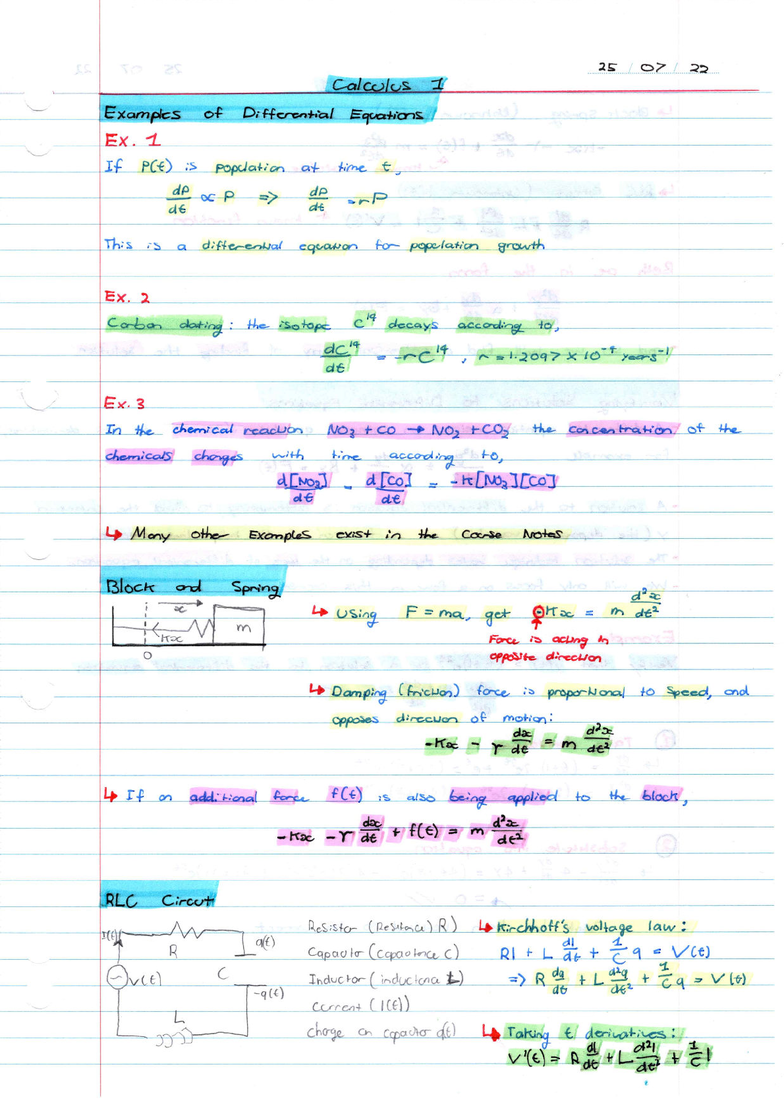 25 / 07 / 22
Calculus 1
Examples of Differential Equations
Ex. 1
If P(t) is population at time t,
dP/dt ∝ P => dP/dt = rP
This is a differential equation for population growth
Ex. 2
Carbon dating: the isotope C¹⁴ decays according to,
dC¹⁴/dt = -rC¹⁴, r = 1.2097 × 10⁻⁴ years⁻¹
Ex. 3
In the chemical reaction NO₃ + CO → NO₂ + CO₂ the concentration of the
chemicals changes with time according to,
d[NO₃]/dt = d[CO]/dt = -K[NO₃][CO]
↳ Many other Examples exist in the Course Notes
Block and Spring
x
Kx
m
0
↳ Using F = ma, get -Kx = m d²x/dt²
Force is acting in
opposite direction
↳ Damping (friction) force is proportional to speed, and
opposes direction of motion:
-Kx - γ dx/dt = m d²x/dt²
↳ If an additional force f(t) is also being applied to the block,
-Kx - γ dx/dt + f(t) = m d²x/dt²
RLC Circuit
I(t)
R
q(t)
V(t)
C
-q(t)
L
Resistor (Resistence) R)
Capacitor (capacitence C)
Inductor (inductence L)
Current (I(t))
charge on capacitor q(t)
↳ Kirchhoff's voltage law:
RI + L dI/dt + 1/C q = V(t)
=> R dq/dt + L d²q/dt² + 1/C q = V(t)
↳ Taking t derivatives:
V'(t) = R dI/dt + L d²I/dt² + 1/C I